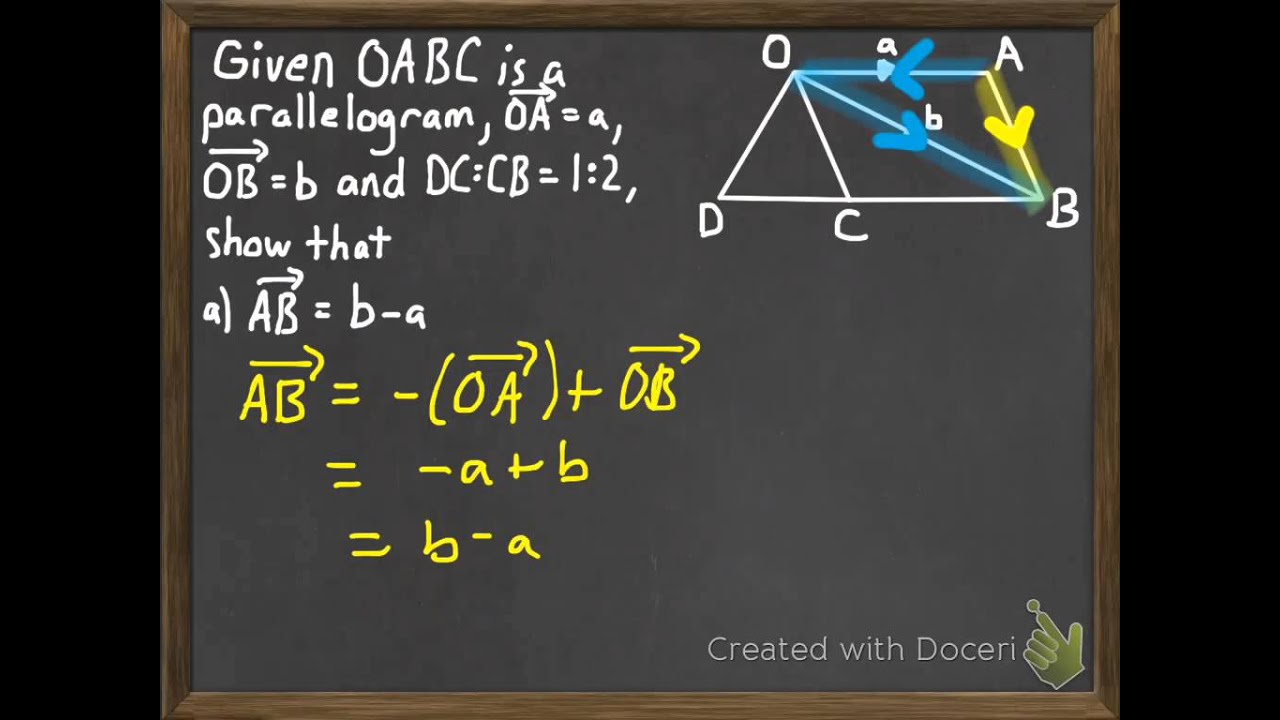 Given OABC is a
parallelogram, $\overrightarrow{OA}$ = a,
$\overrightarrow{OB}$ = b and DC:CB = 1:2,
show that
a) $\overrightarrow{AB}$ = b - a
$\overrightarrow{AB}$ = -($\overrightarrow{OA}$) + $\overrightarrow{OB}$
= -a + b
= b - a
O a A
b
D C B
Created with Doceri